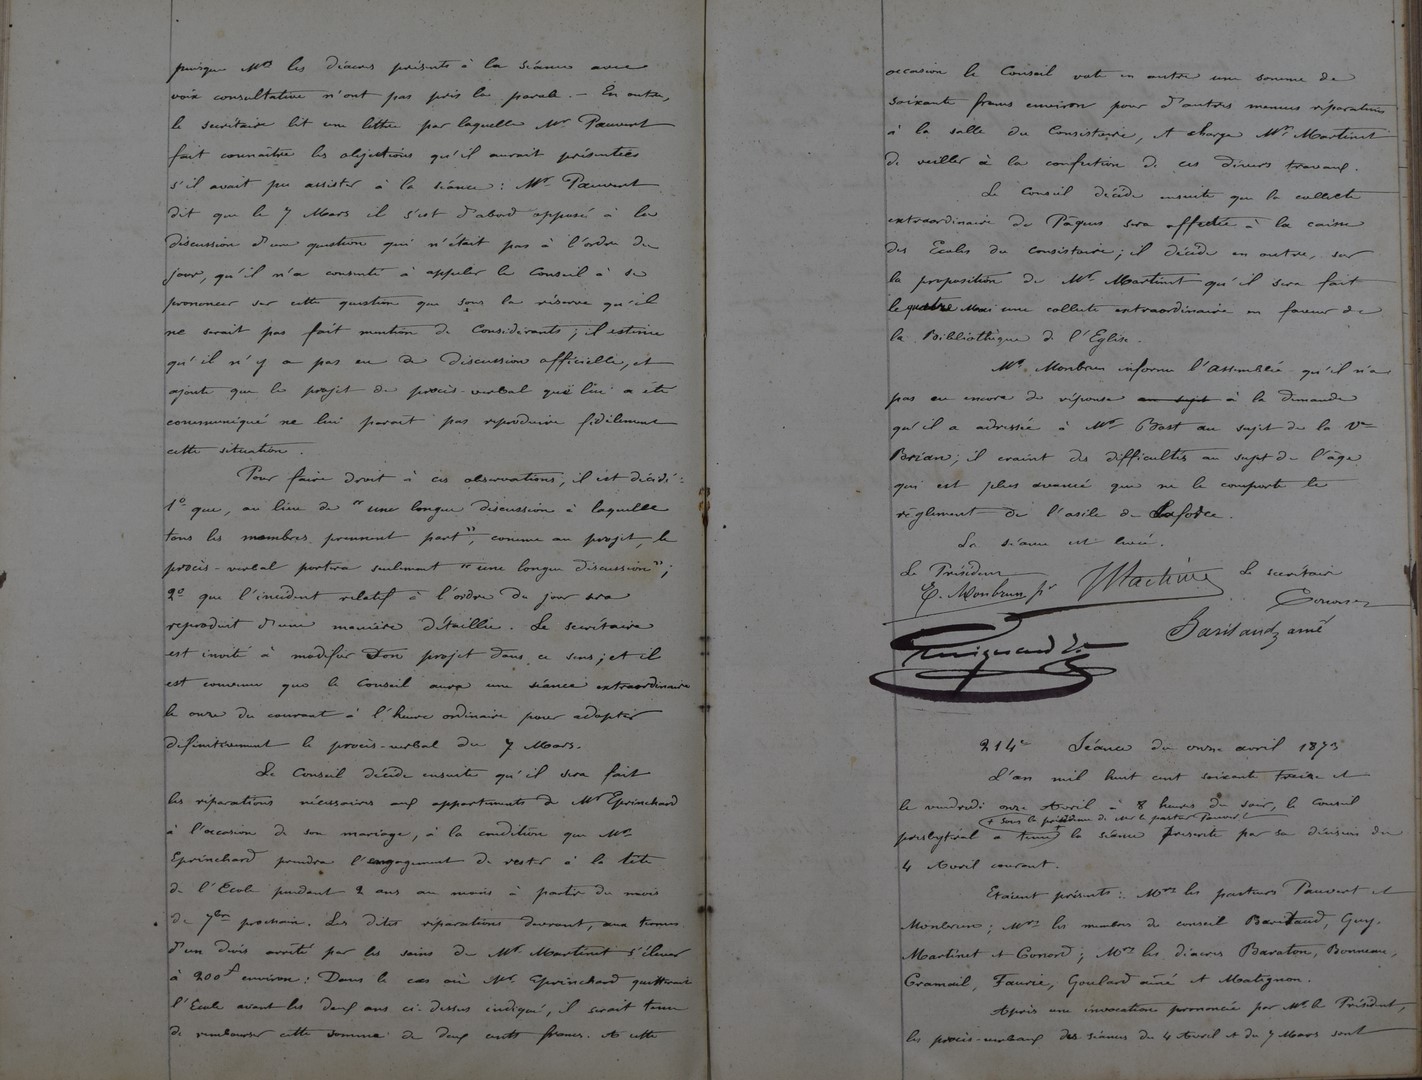 puisque Mrs les diacres présents à la séance avec
voix consultative n'ont pas pris la parole. — En outre,
le secrétaire lit une lettre par laquelle Mr Pauvert
fait connaître les objections qu'il aurait présentées
s'il avait pu assister à la séance : Mr Pauvert
dit que le 7 Mars il s'est d'abord opposé à la
discussion d'une question qui n'était pas à l'ordre du
jour, qu'il n'a consenti à appeler le Conseil à se
prononcer sur cette question que sous la réserve qu'il
ne serait pas fait mention de Considérants ; il estime
qu'il n'y a pas eu de discussion officielle, et
ajoute que le projet de procès-verbal qui lui a été
communiqué ne lui parait pas reproduire fidèlement
cette situation.
Pour faire droit à ces observations, il est décidé :
1° que, au lieu de "une longue discussion à laquelle
tous les membres prennent part", comme au projet, le
procès-verbal portera seulement "une longue discussion" ;
2° que l'incident relatif à l'ordre du jour sera
reproduit d'une manière détaillée. Le secrétaire
est invité à modifier son projet dans ce sens ; et il
est convenu que le Conseil aura une séance extraordinaire
le onze du courant à l'heure ordinaire pour adopter
définitivement le procès-verbal du 7 Mars.
Le Conseil décide ensuite qu'il sera fait
les réparations nécessaires aux appartements de Mr Eprinchard
à l'occasion de son mariage, à la condition que Mr
Eprinchard prendra l'engagement de rester à la tête
de l'Ecole pendant 2 ans au moins à partir du mois
de 7bre prochain. Les dites réparations devront, aux termes
d'un devis arrêté par les soins de Mr Martinet s'élever
à 200f environ : Dans le cas où Mr Eprinchard quitterait
l'Ecole avant les deux ans ci-dessus indiqué, il serait tenu
de rembourser cette somme de deux cents francs. A cette
occasion le Conseil vote en outre une somme de
soixante francs environ pour d'autres menues réparations
à la salle du Consistoire, et charge Mr Martinet
de veiller à la confection de ces divers travaux.
Le Conseil décide ensuite que la collecte
extraordinaire de Pâques sera affectée à la caisse
des Ecoles du consistoire ; il décide en outre, sur
la proposition de Mr Martinet qu'il sera fait
le quatre Mai une collecte extraordinaire en faveur de
la Bibliothèque de l'Eglise.
Mr Monbrun informe l'Assemblée qu'il n'a
pas eu encore de réponse au sujet à la demande
qu'il a adressée à Mr Bost au sujet de la Vve
Brian ; il craint des difficultés au sujet de l'âge
qui est plus avancé que ne le comporte le
règlement de l'asile de Laforce.
La séance est levée.
Le Président Le secrétaire
E. Monbrun pr Martinet
Baritaud aîné
214e Séance du onze avril 1873
L'an mil huit cent soixante treize et
le vendredi onze Avril à 8 heures du soir, le Conseil
+ sous la présidence de Mr le pasteur Pauvert
presbytéral a tenu la séance prescrite par sa décision du
4 Avril courant.
Etaient présents : Mrs les pasteurs Pauvert et
Monbrun ; Mrs les membres du conseil Baritaud, Guy,
Martinet et Conord ; Mrs les diacres Baraton, Bonneau,
Gramail, Faurie, Goulard aîné et Matignon.
Après une invocation prononcée par Mr le Président,
les procès-verbaux des séances du 4 Avril et du 7 Mars sont